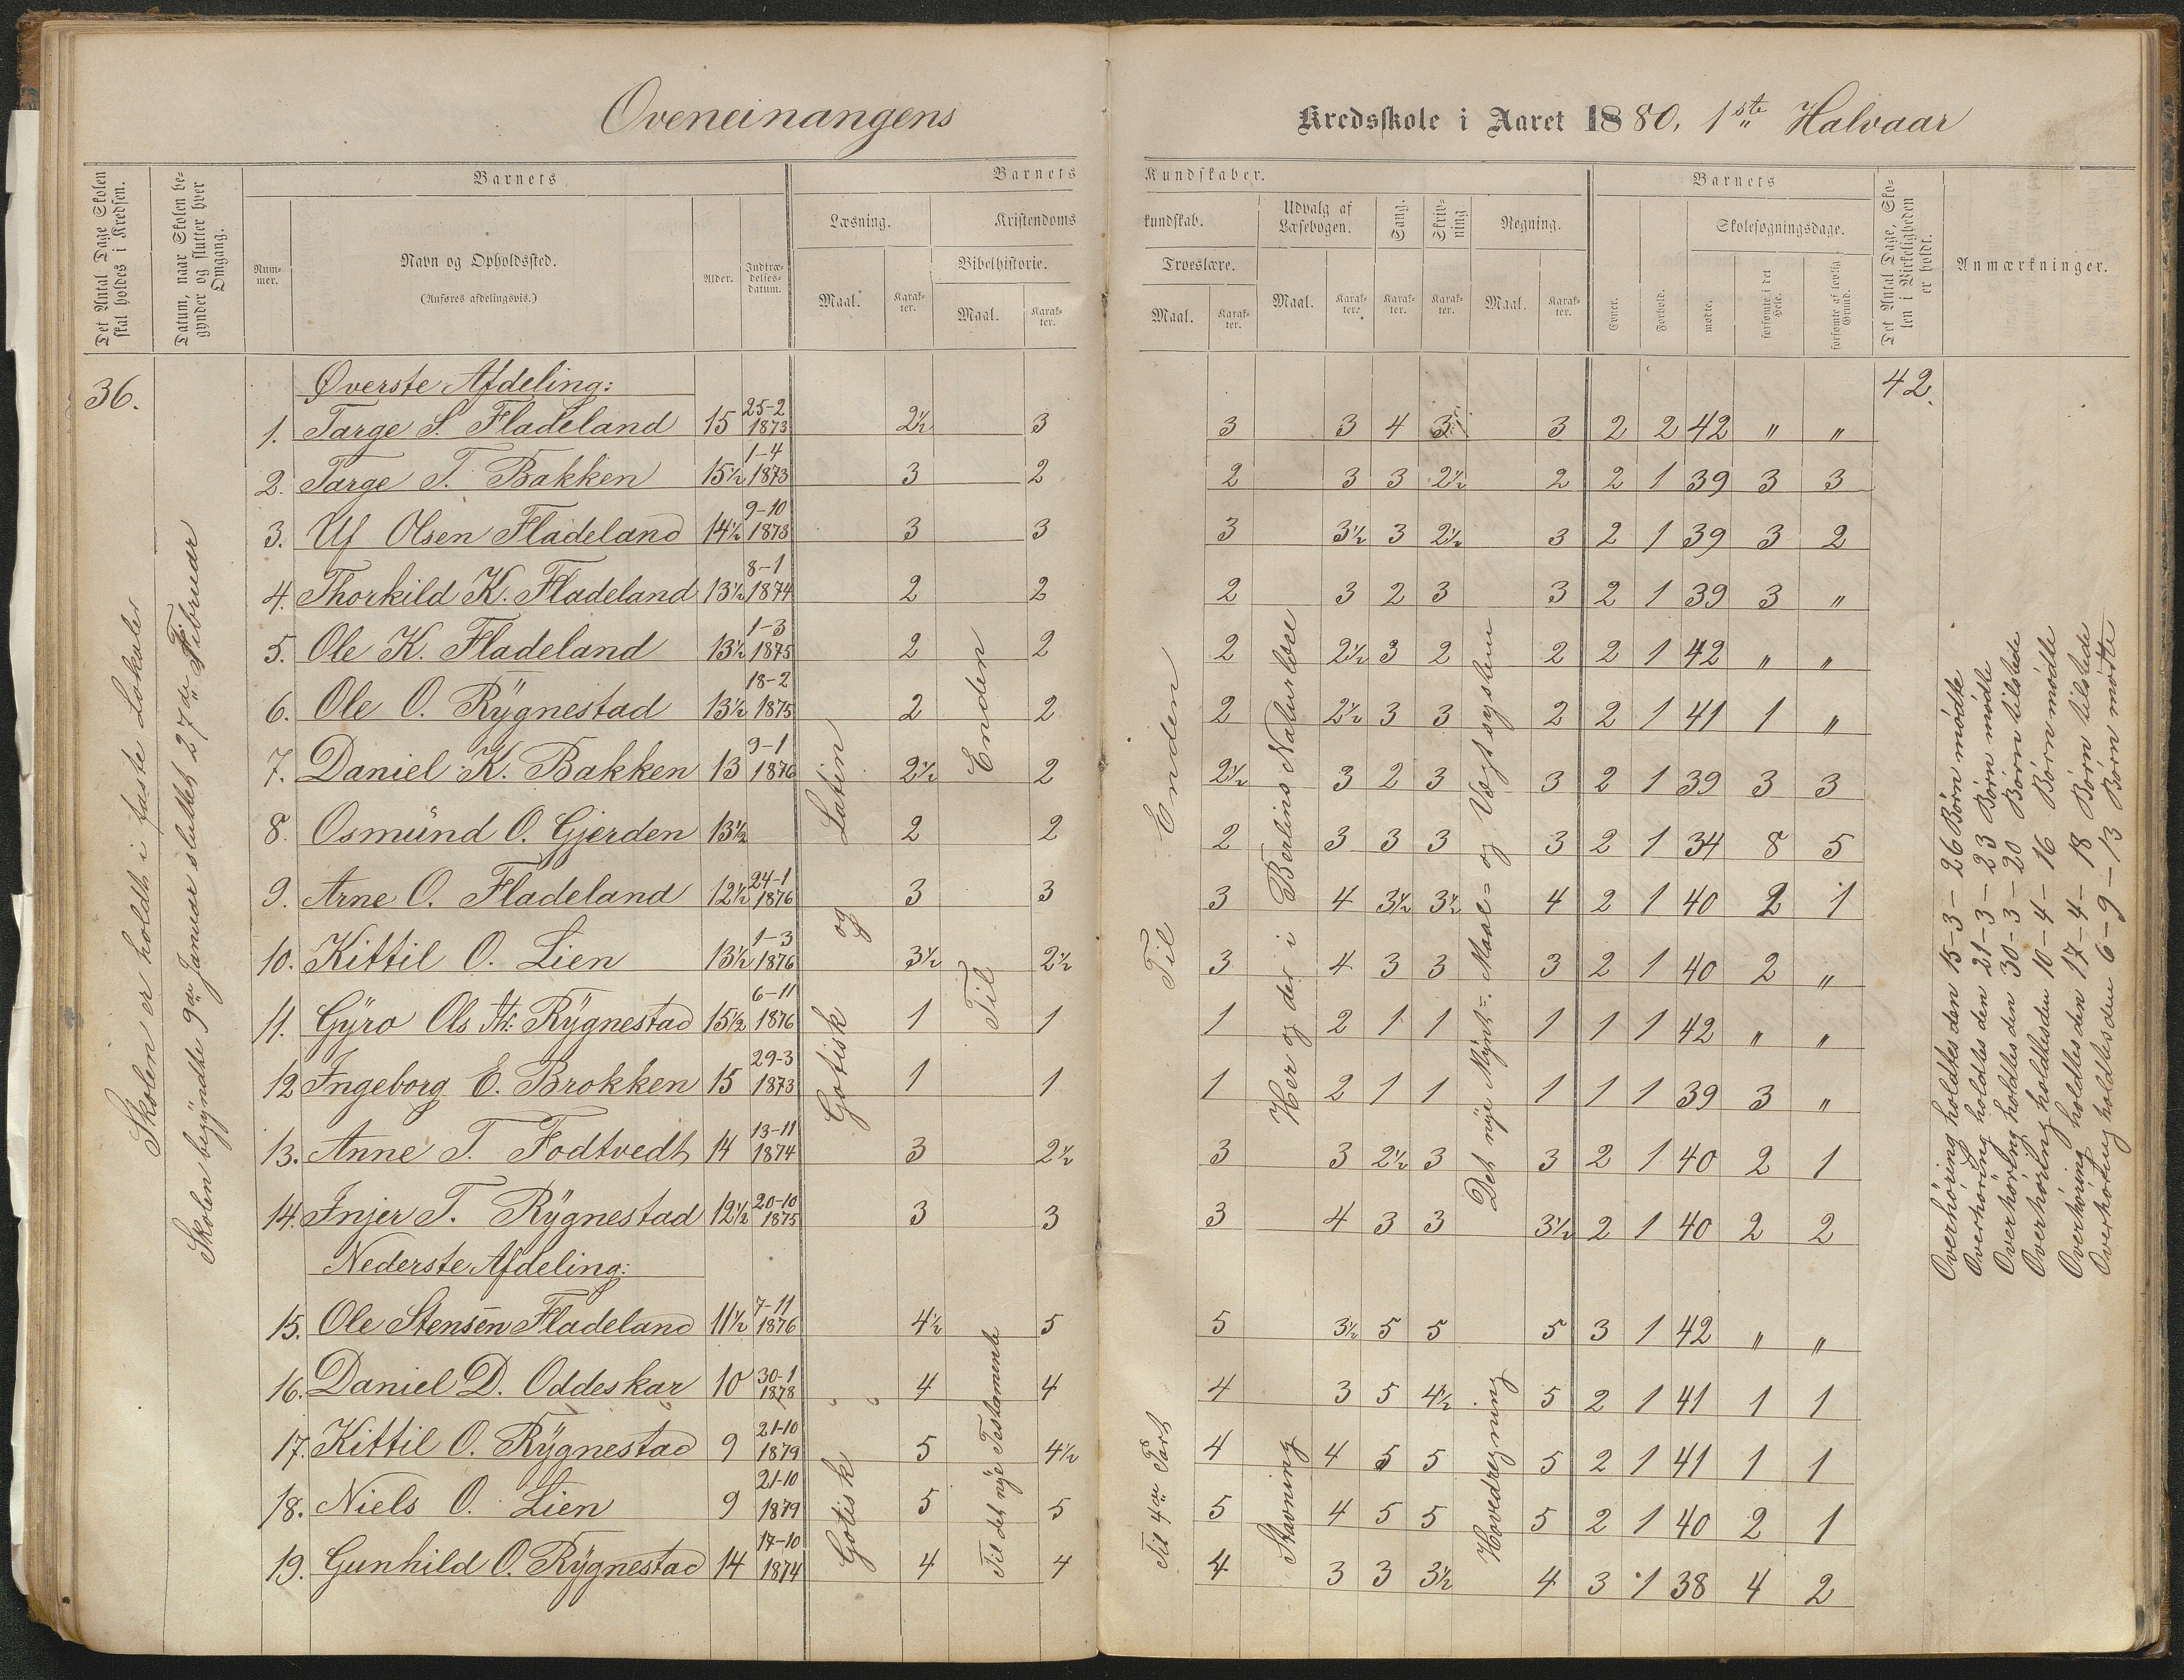 Oveneinangens Kredsskole i Aaret 1880. 1ste Halvaar
Det Antal Dage Skolen skal holdes i Kredsen.
Datum, naar Skolen begynder og slutter hver Omgang.
Barnets
Num-
mer.
Navn og Opholdssted.
(Anføres afdelingsvis.)
Alder.
Indtræ-
delses-
datum.
Barnets Kundskaber.
Læsning.
Maal.
Karak-
ter.
Kristendomskundskab.
Bibelhistorie.
Maal.
Karak-
ter.
Troeslære.
Maal.
Karak-
ter.
Udvalg af
Læsebogen.
Maal.
Karak-
ter.
Sang.
Karak-
ter.
Skriv-
ning
Karak-
ter.
Regning.
Maal.
Karak-
ter.
Barnets
Evner.
Forhold.
Skolesøgningsdage.
mødte.
forsømte i det Hele.
forsømte af lovlig Grund.
Det Antal Dage, Skolen i Virkeligheden er holdt.
Anmærkninger.
36.
42.
Skolen er holdt i faste Lokaler
Skolen begyndte 9de Januar sluttet 27de Februar
Øverste Afdeling:
1. Targe S. Fladeland 15 25-2 1873 2½ 3 3 3 4 3 3 2 2 42 " "
2. Targe T. Bakken 15½ 1-4 1873 3 2 2 3 3 2½ 2 2 1 39 3 3
3. Ulf Olsen Fladeland 14½ 9-10 1873 3 3 3 3½ 3 2½ 3 2 1 39 3 2
4. Thorkild K. Fladeland 13½ 8-1 1874 2 2 2 3 2 3 3 2 1 39 3 "
5. Ole K. Fladeland 13½ 1-3 1875 2 2 2 2½ 3 2 2 2 1 42 " "
6. Ole O. Rÿgnestad 13½ 18-2 1875 2 2 2 2½ 3 3 2 2 1 41 1 "
7. Daniel K. Bakken 13 9-1 1876 2½ 2 2½ 3 2 3 3 2 1 39 3 3
8. Osmund O. Gjerden 13½ 2 2 2 3 3 3 3 2 1 34 8 5
9. Arne O. Fladeland 12½ 24-1 1876 3 3 3 4 3½ 3½ 4 2 1 40 2 1
10. Kittil O. Lien 13½ 1-3 1876 3½ 2½ 3 4 3 3 3 2 1 40 2 "
11. Gÿro Ols Rÿgnestad 15½ 6-11 1876 1 1 1 2 1 1 1 1 1 42 " "
12 Ingeborg E. Brokken 15 29-3 1873 1 1 1 2 1 1 1 1 1 39 3 "
13. Anne T. Fodtvedt 14 13-11 1874 3 2½ 3 3 2½ 3 3 2 1 40 2 1
14. Injer T. Rÿgnestad 12½ 20-10 1875 3 3 3 4 3 3 3½ 2 1 40 2 2
Nederste Afdeling:
15. Ole Stensen Fladeland 11½ 7-11 1876 4½ 5 5 3½ 5 5 5 3 1 42 " "
16. Daniel D. Oddeskar 10 30-1 1878 4 4 4 3 5 4½ 5 2 1 41 1 1
17. Kittil O. Rÿgnestad 9 21-10 1879 5 4½ 4 4 5 5 5 2 1 41 1 1
18. Niels O. Lien 9 21-10 1879 5 5 5 4 5 5 5 2 1 40 2 1
19. Gunhild O. Rÿgnestad 14 17-10 1874 4 4 4 3 3 3½ 4 3 1 38 4 2
Gotisk og Latin
Til Enden
Til Enden
Her og der i Berlins Naturlære
Det nye Mÿnt= Maal= og Vægtsystem
Gotisk
Til det nye Testamente
Til 4de Part
Stavning
Hovedregning
Overhøring holdtes den 15-3- 26 Børn mødte
Overhøring holdtes den 21-3- 23 Børn mødte
Overhøring holdtes den 30-3- 20 Børn tilstede
Overhøring holdtes den 10-4- 16 Børn mødte
Overhøring holdtes den 17-4- 18 Børn tilstede
Overhøring holdtes den 6-9- 13 Børn mødte